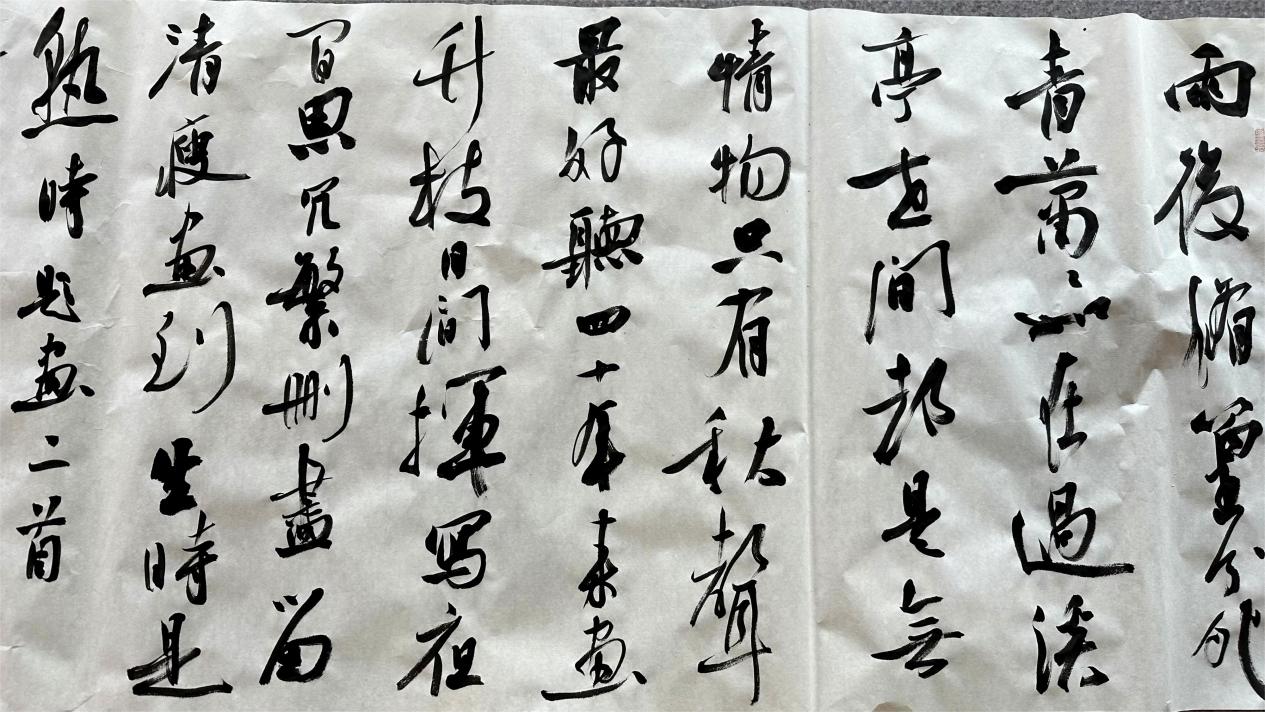 雨後脩篁分外
青蕭々如在過溪
亭世間都是無
情物只有秋聲
最好聽四十年來畫
竹枝日間揮寫夜
間思冗繁刪盡留
清瘦畫到生時是
熟時題畫二首